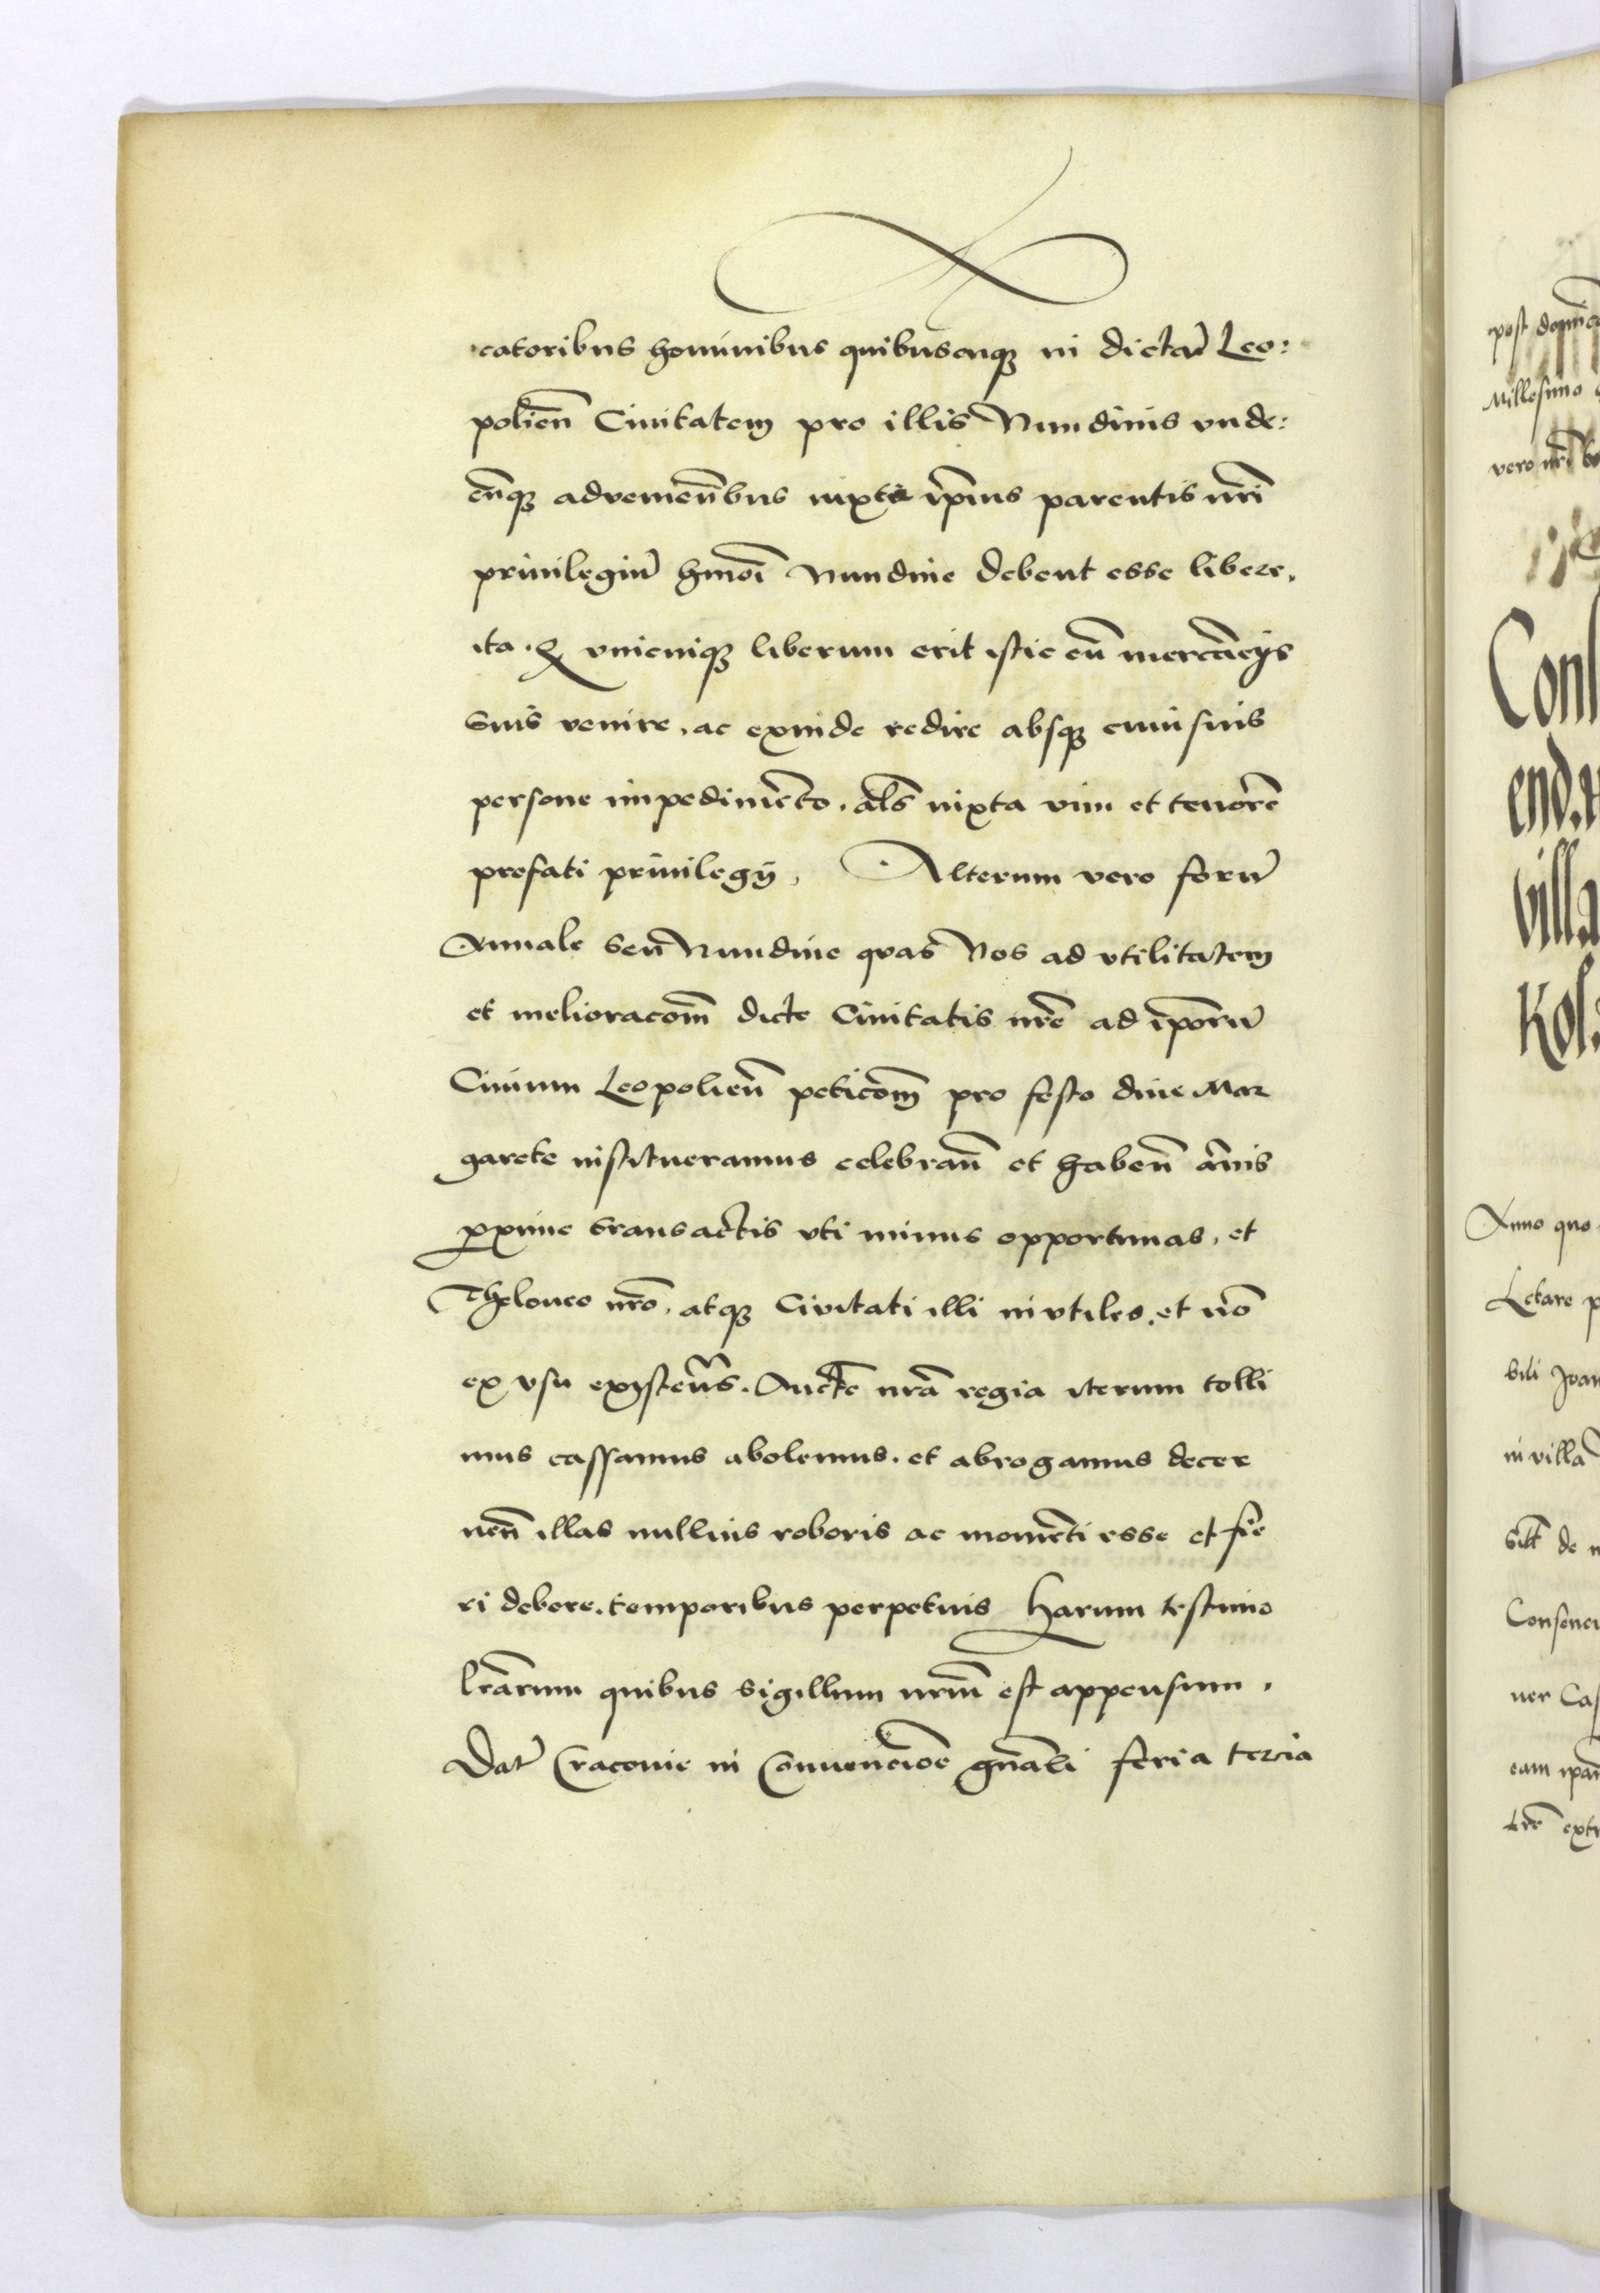 catoribus hominibus quibuscunq3 in dictã Leo:
polieñ Ciuitatem pro illis Nundinis vnde:
cũq3 adveniẽtibus iuxta ip̃ius parentis nr̃i
priuilegiũ hmõi Nundine debent esse libere.
ita q unicuiq3 liberum erit istic cũ mercãcijs
suis venire, ac exinde redire absq3 cuiusuis
persone impedimẽto. als̃ iuxta vim et tenorẽ
prefati priuilegij. Alterum vero forũ
Annale seu Nundine quas Nos ad vtilitatem
et melioracom̃ dicte Ciuitatis nr̃e ad ip̃orũ
Ciuium Leopolieñ peticom̃ pro festo diue Mar
garete institueramus celebrañ et habeñ añis
proxime transactis vti minus opportunas, et
Theloneo nr̃o, atq3 Civitati illi invtiles, et nõ
ex vsu existeñs. Aucte̅ nr̃a regia iterum tolli
mus cassamus abolemus. et abrogamus decer
neñ illas nullius roboris ac momẽti esse et fie
ri debere. temporibus perpetuis Harum testimo
lr̃arum quibus sigillum nr̃m est appensum.
Dat̃ Cracouie in Conuencioe̅ gn̅ali feria tercia
post domi
Millesimo
vero nr̃i
Conf
end.
villa
Kol.
Anno quo
Letare
bili Joan
in villa
de
Consenc
ner Cas
eam ipã
tr̃e extr